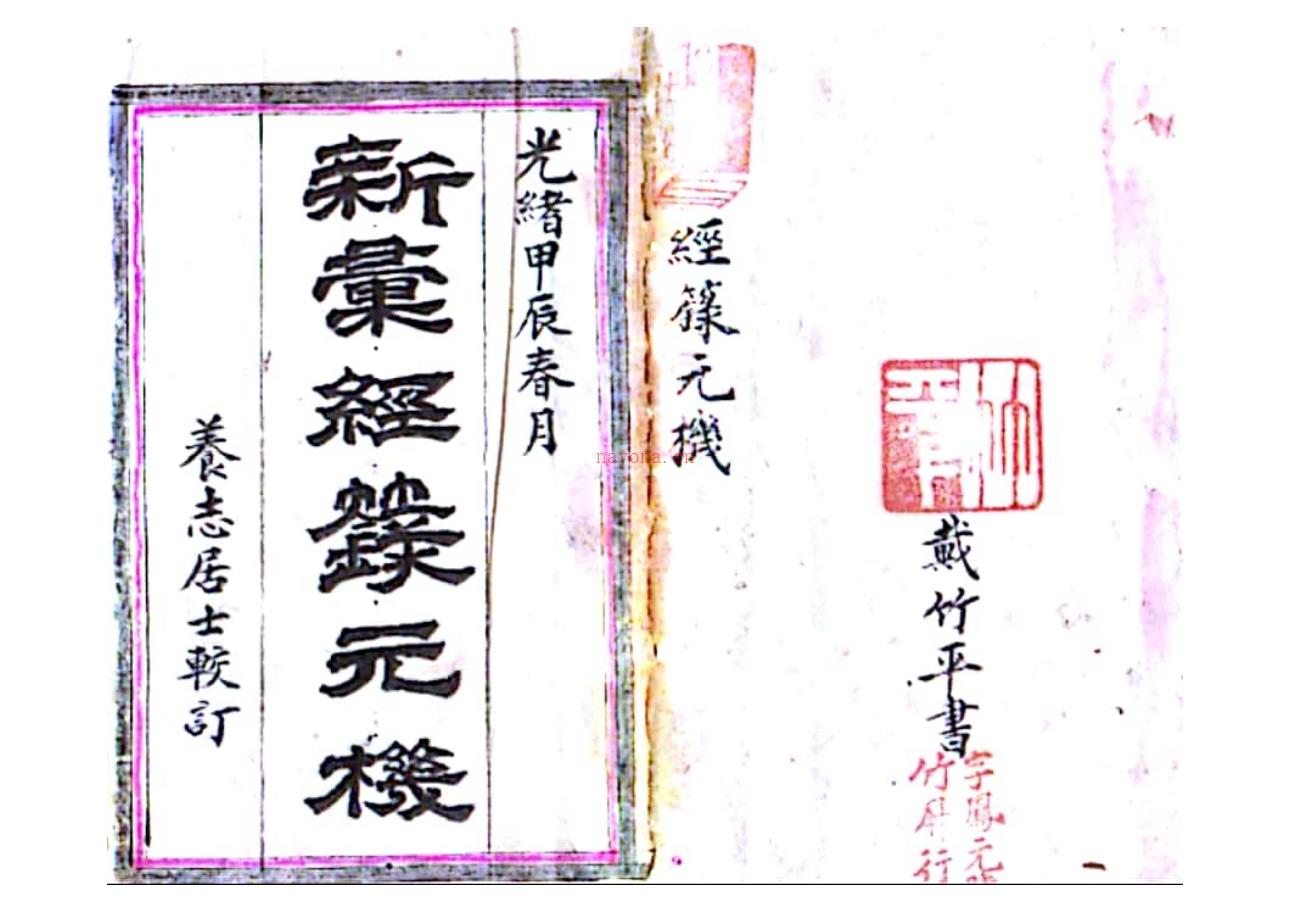 戴竹平書
字鳳元
竹屏行
經籙元機
光緒甲辰春月
新彙經籙元機
養志居士較訂
nayona.cn